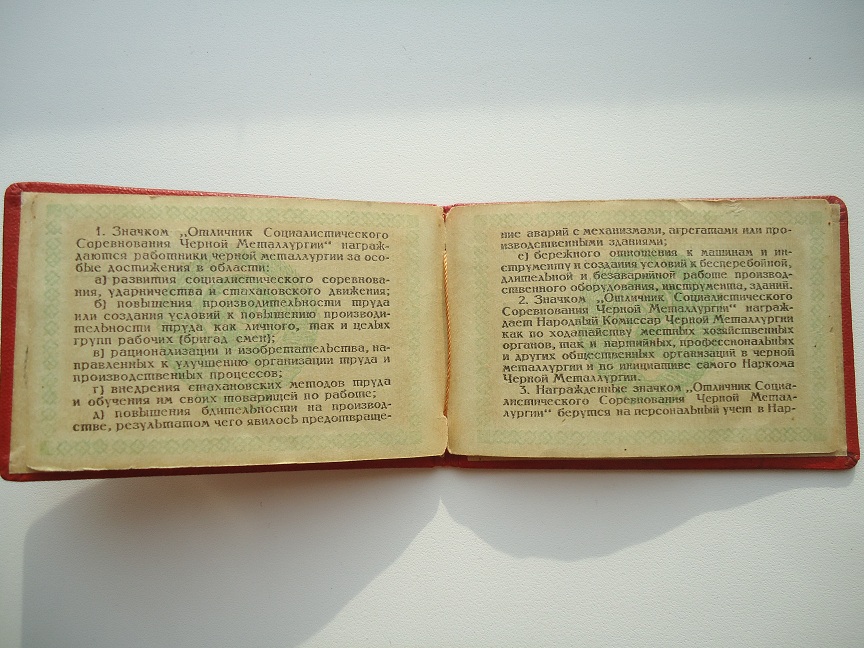 1. Значком „Отличник Социалистического
Соревнования Черной Металлургии“ награж-
даются работники черной металлургии за осо-
бые достижения в области:
а) развития социалистического соревнова-
ния, ударничества и стахановского движения;
б) повышения производительности труда
или создания условий к повышению производи-
тельности труда как личного, так и целых
групп рабочих (бригад смен);
в) рационализации и изобретательства, на-
правленных к улучшению организации труда и
производственных процессов;
г) внедрения стахановских методов труда
и обучения им своих товарищей по работе;
д) повышения бдительности на производ-
стве, результатом чего явилось предотвраще-
ние аварий с механизмами, агрегатами или про-
изводственными зданиями;
е) бережного отношения к машинам и ин-
струменту и создания условий к бесперебойной,
длительной и безаварийной работе производ-
ственного оборудования, инструмента, зданий.
2. Значком „Отличник Социалистического
Соревнования Черной Металлургии“ награж-
дает Народный Комиссар Черной Металлургии
как по ходатайству местных хозяйственных
органов, так и партийных, профессиональных
и других общественных организаций в черной
металлургии и по инициативе самого Наркома
Черной Металлургии.
3. Награжденные значком „Отличник Социа-
листического Соревнования Черной Метал-
лургии“ берутся на персональный учет в Нар-